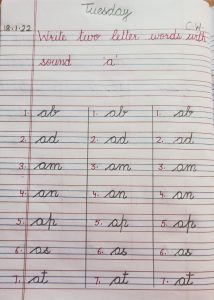 Tuesday
18.1.22 C.W
Write two letter words with
sound 'a'
1. ab 1. ab 1. ab
2. ad 2. ad 2. ad
3. am 3. am 3. am
4. an 4. an 4. an
5. ap 5. ap 5. ap
6. as 6. as 6. as
7. at 7. at 7. at